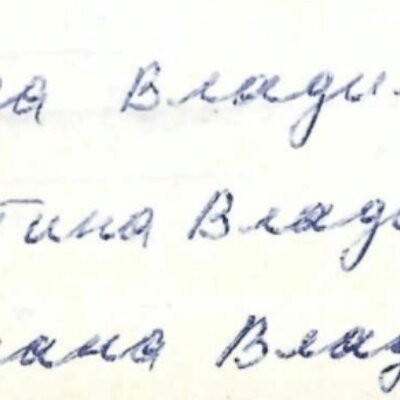 на Влади
тина Влади
лана Влад